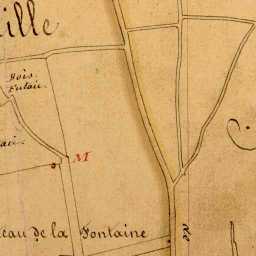 ille
Bois
Futaie
M
eau de la Fontaine
de